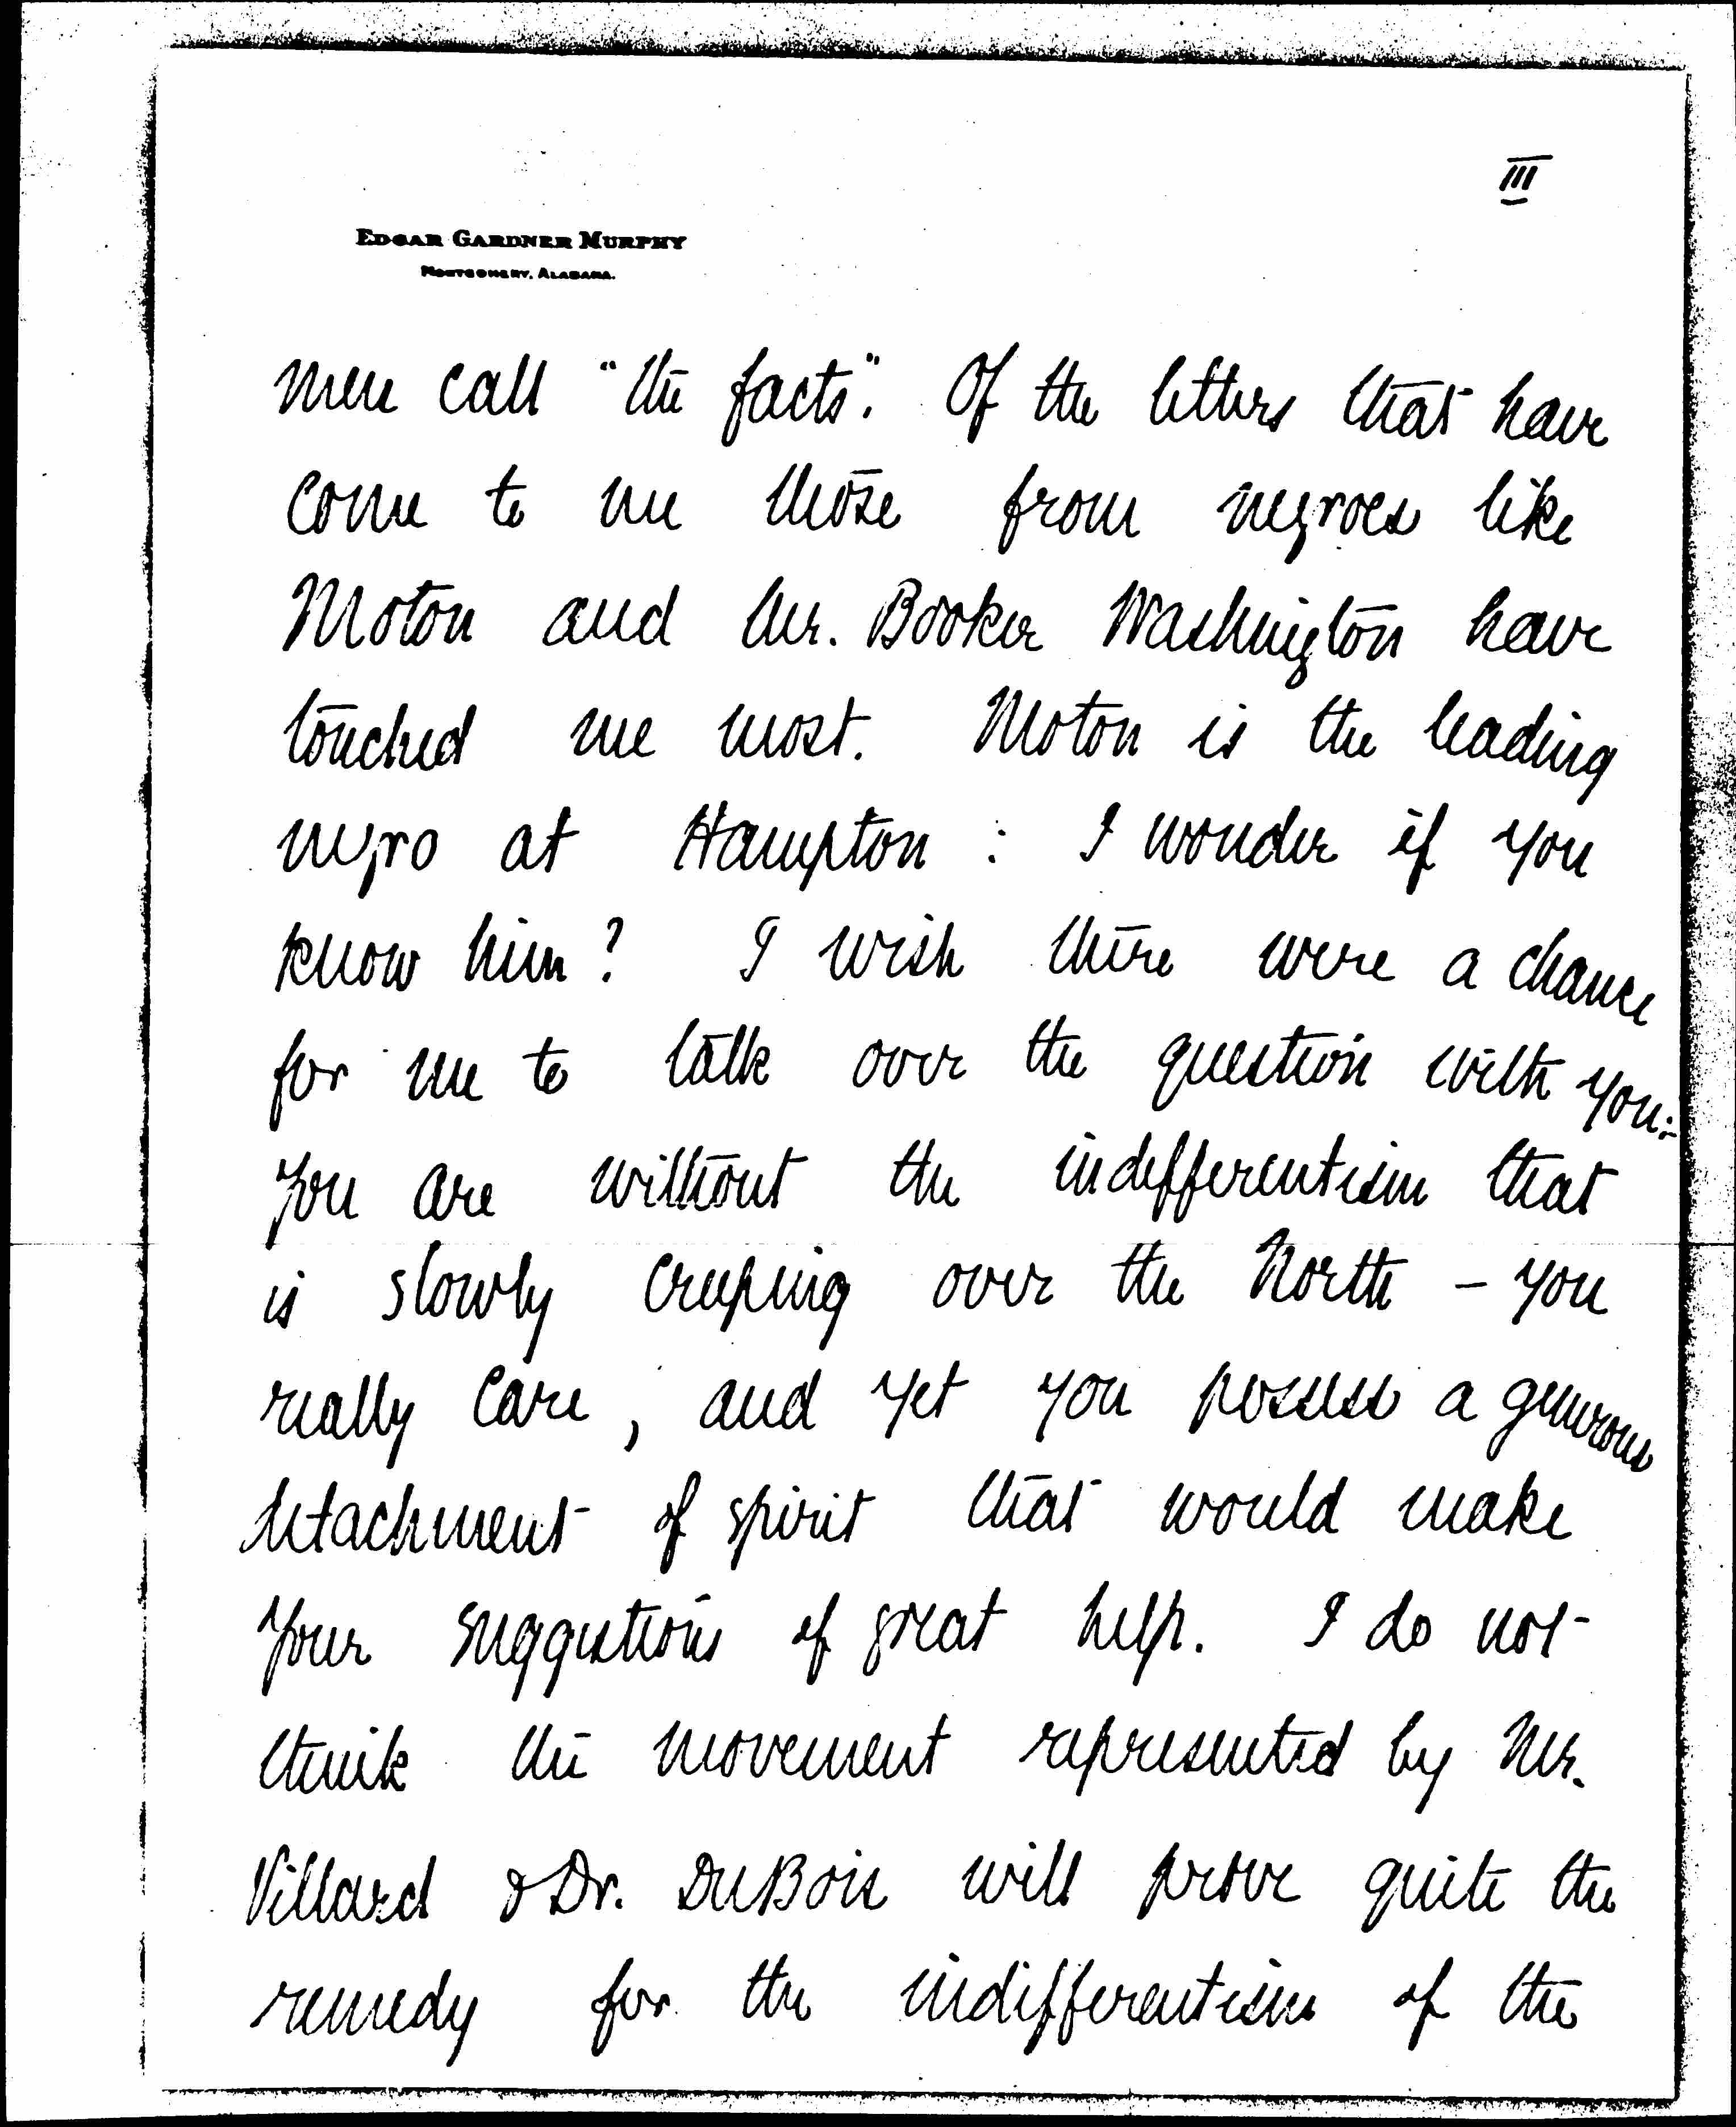 III
EDGAR GARDNER MURPHY
MONTGOMERY, ALABAMA.
men call "the facts". Of the letters that have
come to me those from negroes like
Moton and Mr. Booker Washington have
touched me most. Moton is the leading
negro at Hampton : I wonder if you
know him? I wish there were a chance
for me to talk over the question with you:-
You are without the indifferentism that
is slowly creeping over the North - you
really care, and yet you possess a generous
detachment of spirit that would make
your suggestions of great help. I do not
think the movement represented by Mr.
Villard & Dr. DuBois will prove quite the
remedy for the indifferentism of the